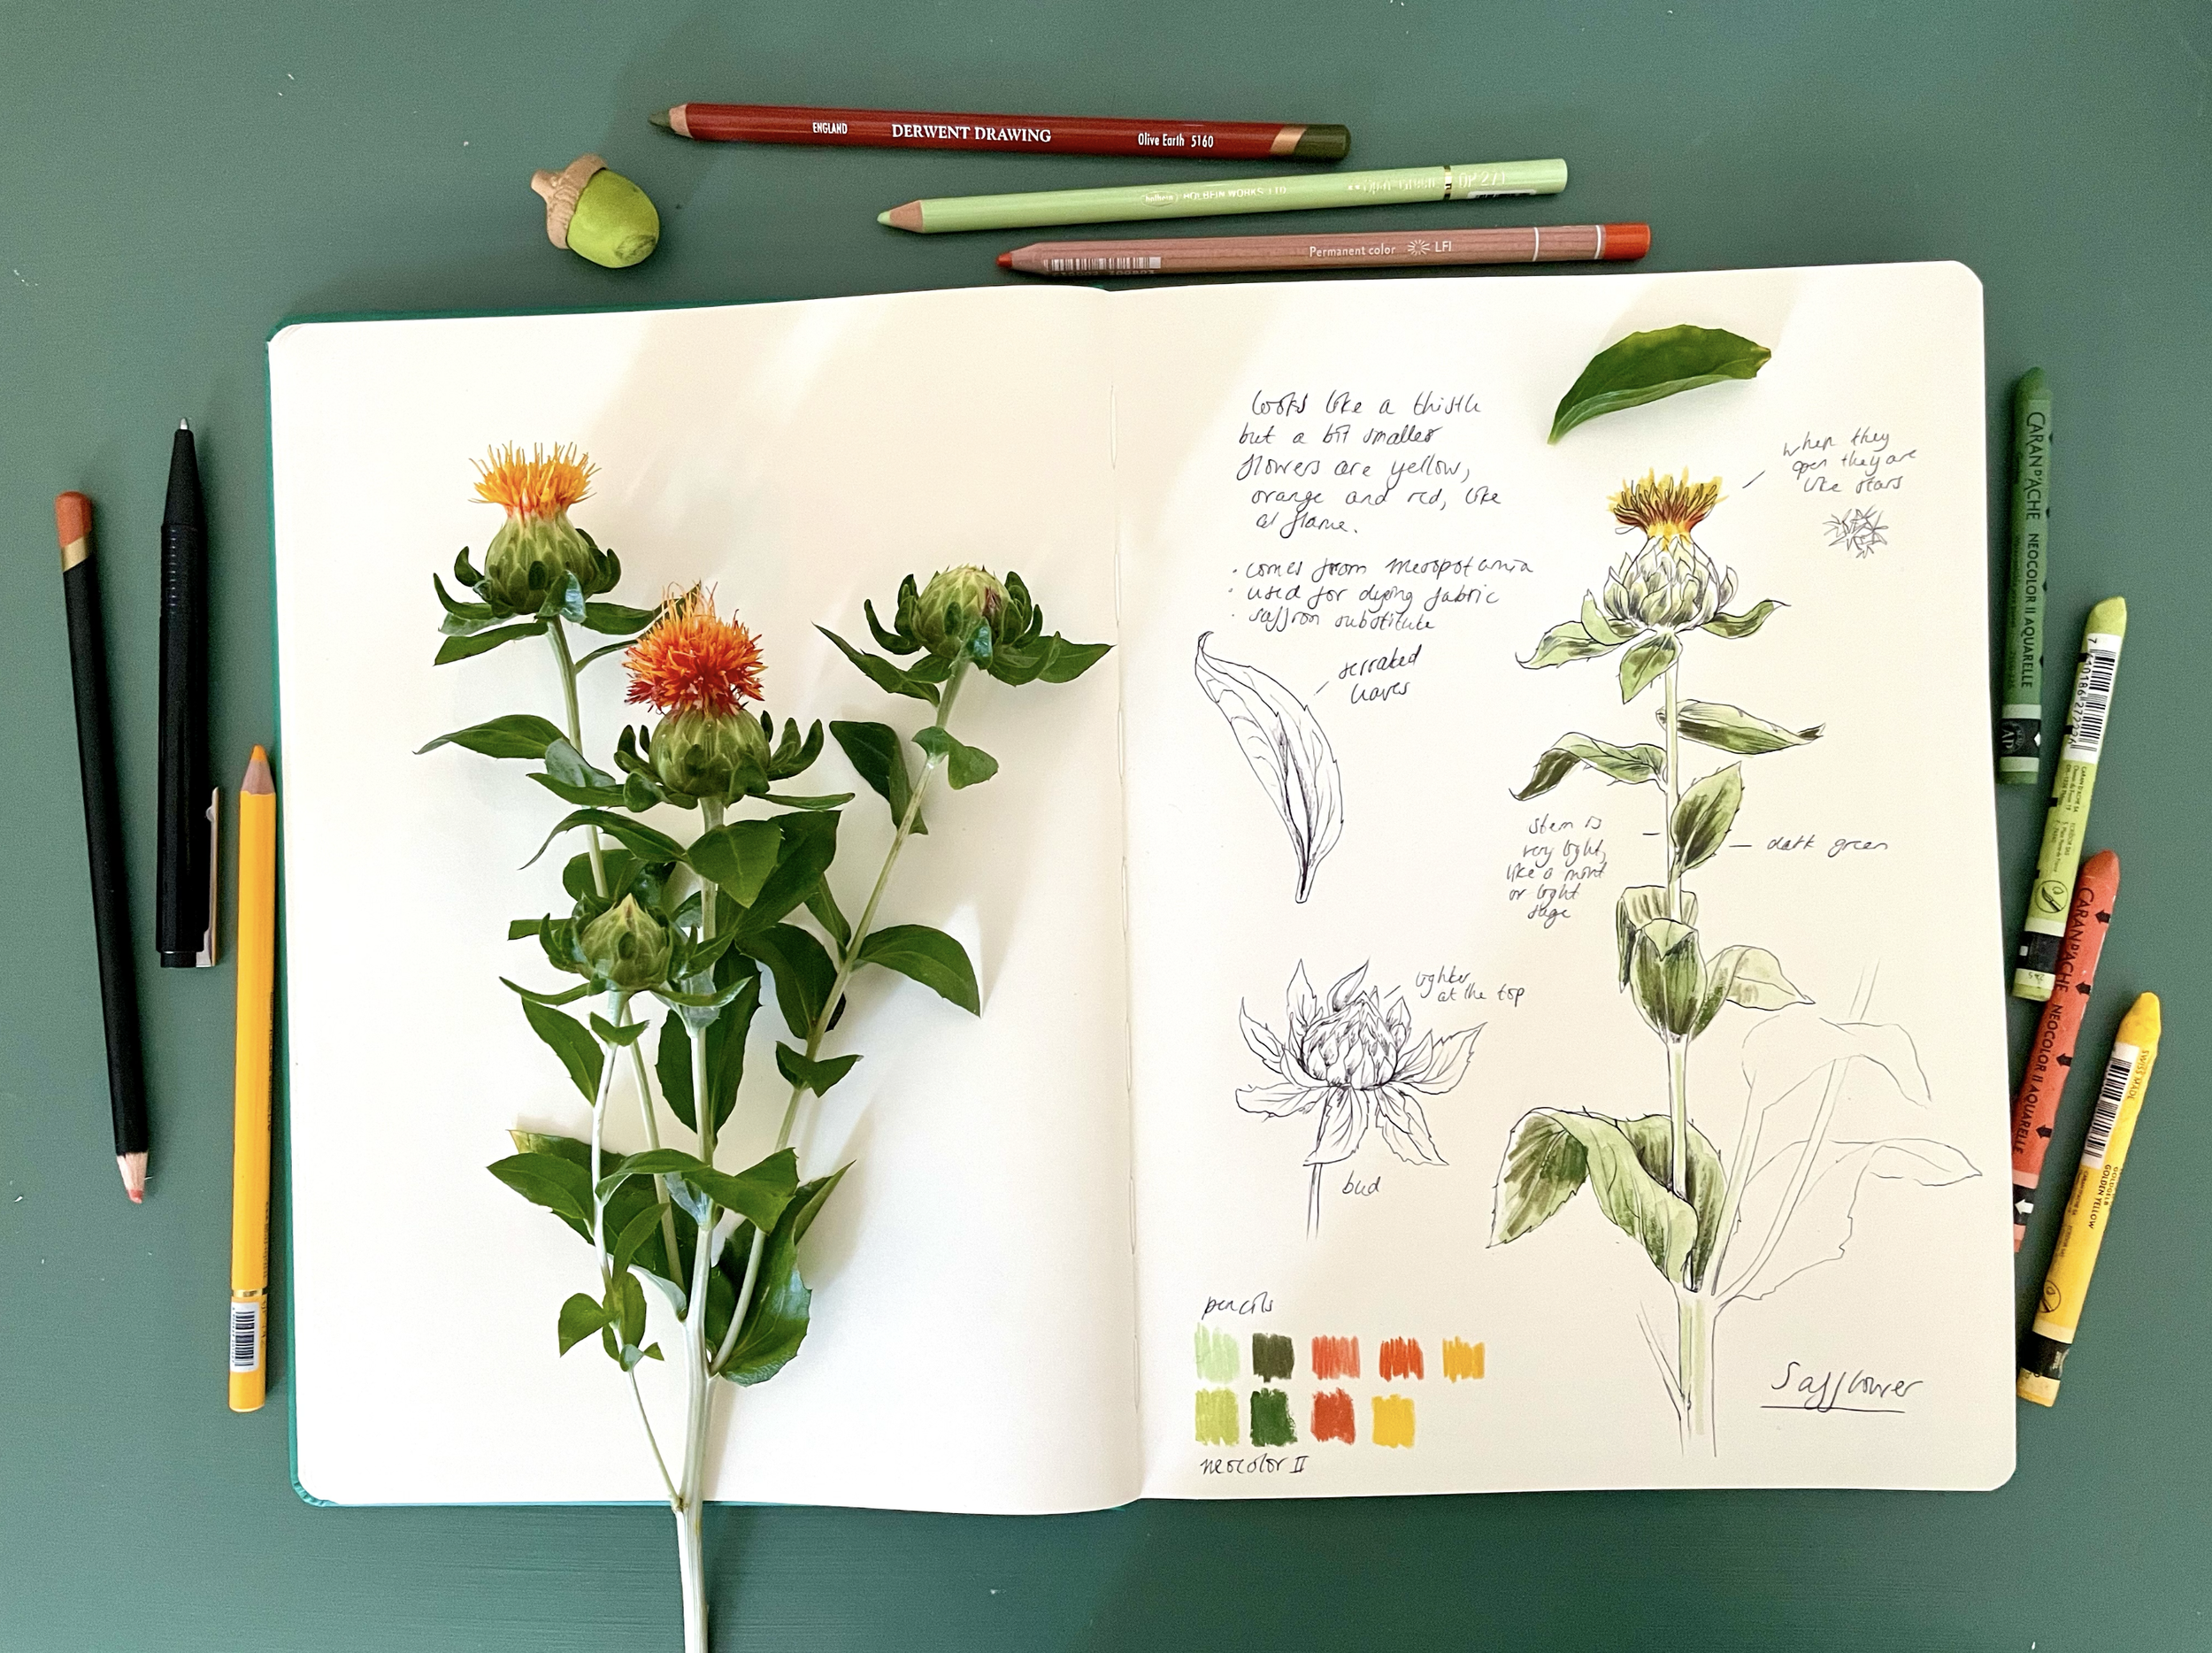 ENGLAND DERWENT DRAWING Olive Earth 5160
holbein HOLBEIN WORKS, LTD. OP 271
Permanent color LFI
looks like a thistle
but a bit smaller
flowers are yellow,
orange and red, like
a flame.
• comes from mesopotamia
• used for dying fabric
• saffron substitute
when they
open they are
like stars
serrated
leaves
stem is
very light,
like a mint
or light
sage
dark green
lighter
at the top
bud
pencils
neocolor II
Safflower
CARAN D'ACHE NEOCOLOR II AQUARELLE
CARAN D'ACHE NEOCOLOR II AQUARELLE
SWISS MADE
GOLDEN YELLOW